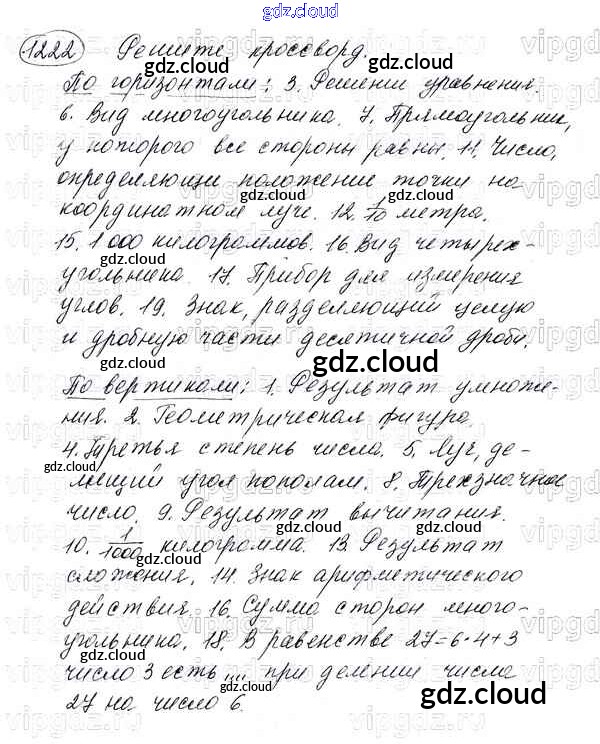 gdz.cloud
gdz.cloud
1222 Решите кроссворд.
По горизонтали: 3. Решении уравнения.
6. Вид многоугольника. 7. Прямоугольник,
у которого все стороны равны. 11. Число,
определяющи положение точки на
координатном луче. 12. 1/10 метра.
15. 1 000 килограммов. 16. Вид четырех-
угольника. 17. Прибор для измерения
углов. 19. Знак, разделяющий целую
и дробную части десятичной дроби.
По вертикали: 1. Результат умноже-
ния. 2. Геометрическая фигура.
4. Третья степень числа. 5. Луч, де-
лящий угол пополам. 8. Трехзначное
число. 9. Результат вычитания.
10. 1/1000 килограмма. 13. Результат
сложения. 14. Знак арифметического
действия. 16. Сумма сторон много-
угольника. 18. В равенстве 27=6·4+3
число 3 есть .... при делении числа
27 на число 6.